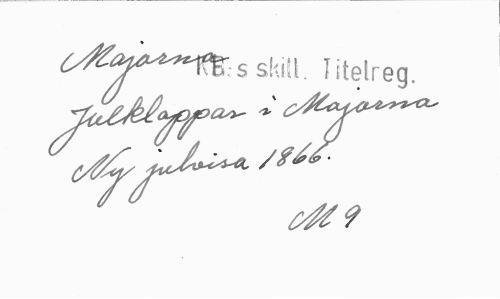 Majorna
KB:s skill. Titelreg.
Julklappar i Majorna
Ny julvisa 1866.
M 9